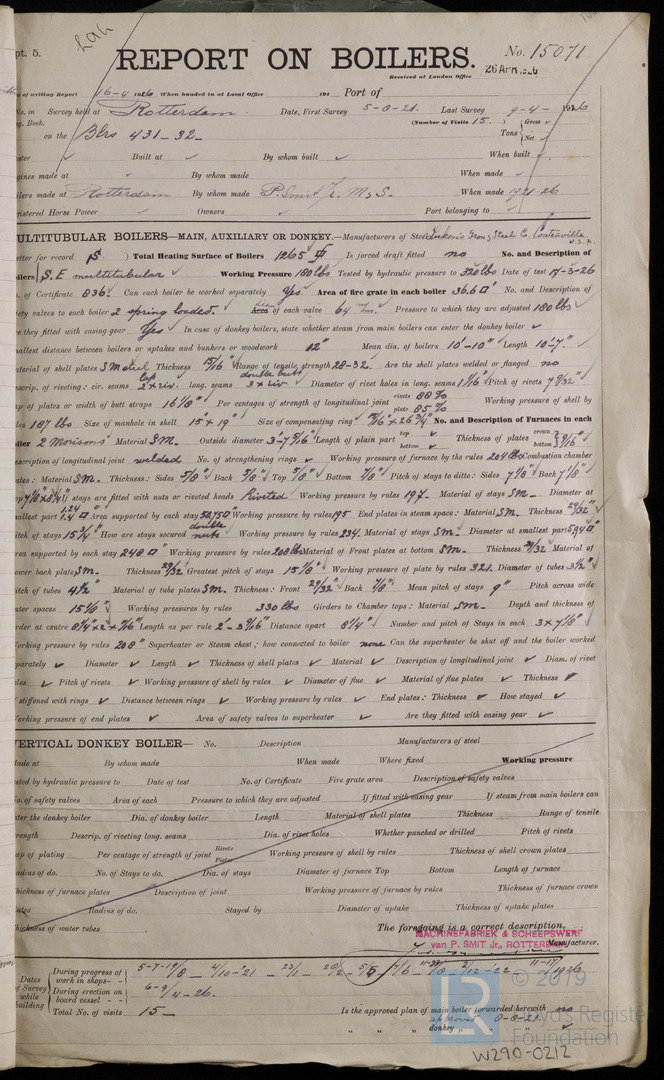 pt. 5.
REPORT ON BOILERS. No. 15071
Received at London Office 26 APR 1926
of writing Report 16-4-1926 When handed in at Local Office 191 Port of
No. in Survey held at Rotterdam. Date, First Survey 5-8-21. Last Survey 9-4-1926
g. Book. (Number of Visits 15.)
on the Blrs 431-32- Tons Gross Net
ster Built at By whom built When built
gines made at By whom made When made
ilers made at Rotterdam By whom made P. Smit Jr. M & S. When made 1921-26
gistered Horse Power Owners Port belonging to
MULTITUBULAR BOILERS—MAIN, AUXILIARY OR DONKEY.—Manufacturers of Steel Lukens Iron & Steel Co. Coatesville U.S.A.
etter for record S Total Heating Surface of Boilers 1265 Is forced draft fitted no No. and Description of
oilers S.E multitubular Working Pressure 180 lbs Tested by hydraulic pressure to 320 lbs Date of test 17-3-26
o. of Certificate 836. Can each boiler be worked separately Yes. Area of fire grate in each boiler 36.6 No. and Description of
fety valves to each boiler 2 spring loaded. Area of each valve 64 m/m. Pressure to which they are adjusted 180 lbs
re they fitted with easing gear Yes In case of donkey boilers, state whether steam from main boilers can enter the donkey boiler
mallest distance between boilers or uptakes and bunkers or woodwork 12" Mean dia. of boilers 10'-10" Length 10'-7".
aterial of shell plates S M steel Thickness 15/16" Range of tensile strength 28-32. Are the shell plates welded or flanged no
escrip. of riveting: cir. seams lap 2 x riv. long. seams double butt 3 x riv Diameter of rivet holes in long. seams 1 1/16" Pitch of rivets 7 9/32"
ap of plates or width of butt straps 16 1/8" Per centages of strength of longitudinal joint rivets 88% plate 85% Working pressure of shell by
les 187 lbs Size of manhole in shell 15" x 19" Size of compensating ring No. and Description of Furnaces in each
iler 2 Morisons Material S M. Outside diameter 3'-7 5/16" Length of plain part top bottom Thickness of plates crown bottom 9/16"
escription of longitudinal joint welded No. of strengthening rings Working pressure of furnace by the rules 204 lbs Combustion chamber
ates: Material S M. Thickness: Sides 5/8" Back 5/8" Top 5/8" Bottom 7/8" Pitch of stays to ditto: Sides 7 1/8" Back 7 1/8"
If stays are fitted with nuts or riveted heads Riveted Working pressure by rules 197. Material of stays S M- Diameter at
mallest part Area supported by each stay 50.75 Working pressure by rules 195 End plates in steam space: Material S M. Thickness 29/32"
itch of stays 15 1/4" How are stays secured double nuts Working pressure by rules 234. Material of stays S M. Diameter at smallest part
rea supported by each stay 248 Working pressure by rules 208 lbs Material of Front plates at bottom S M. Thickness 29/32 Material of
ower back plate S M. Thickness 29/32 Greatest pitch of stays 15 1/8" Working pressure of plate by rules 321. Diameter of tubes 3 1/2"
itch of tubes 4 1/2" Material of tube plates S M. Thickness: Front 29/32" Back 7/8" Mean pitch of stays 9" Pitch across wide
ater spaces 15 1/8" Working pressures by rules 330 lbs Girders to Chamber tops: Material S M. Depth and thickness of
rder at centre 8 1/4" x 2 x 7/16" Length as per rule 2'-3 9/16" Distance apart 8 1/4" Number and pitch of Stays in each 3 x 7 1/8"
orking pressure by rules 208" Superheater or Steam chest; how connected to boiler none Can the superheater be shut off and the boiler worked
parately Diameter Length Thickness of shell plates Material Description of longitudinal joint Diam. of rivet
les Pitch of rivets Working pressure of shell by rules Diameter of flue Material of flue plates Thickness
stiffened with rings Distance between rings Working pressure by rules End plates: Thickness How stayed
orking pressure of end plates Area of safety valves to superheater Are they fitted with easing gear
VERTICAL DONKEY BOILER— No. Description Manufacturers of steel
ade at By whom made When made Where fixed Working pressure
sted by hydraulic pressure to Date of test No. of Certificate Fire grate area Description of safety valves
o. of safety valves Area of each Pressure to which they are adjusted If fitted with easing gear If steam from main boilers can
nter the donkey boiler Dia. of donkey boiler Length Material of shell plates Thickness Range of tensile
rength Descrip. of riveting long. seams Dia. of rivet holes Whether punched or drilled Pitch of rivets
ap of plating Per centage of strength of joint Rivets Plates Working pressure of shell by rules Thickness of shell crown plates
adius of do. No. of Stays to do. Dia. of stays Diameter of furnace Top Bottom Length of furnace
hickness of furnace plates Description of joint Working pressure of furnace by rules Thickness of furnace crown
ates Radius of do. Stayed by Diameter of uptake Thickness of uptake plates
hickness of water tubes The foregoing is a correct description,
MACHINEFABRIEK & SCHEEPSWERF
van P. SMIT Jr., ROTTERDAM Manufacturer.
Dates of Survey while building
During progress of work in shops- - 5-7-19/8 - 4/10-21
During erection on board vessel - - 6-9/4-26.
Total No. of visits 15- Is the approved plan of main boiler forwarded herewith no
approved 8-8-21
" " " donkey " "
LR © 2019
Lloyd's Register
Foundation
W290-0212